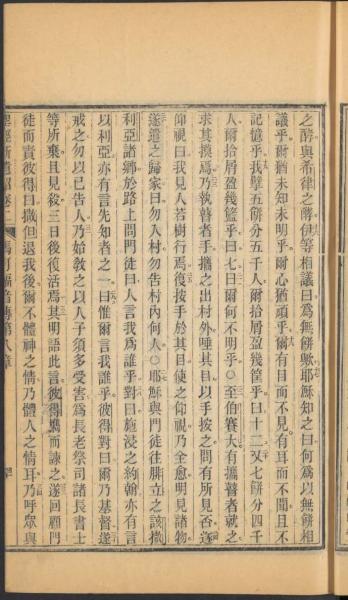 之酵與希律之酵伊等相議曰為無餅歟耶穌知之曰何為以無餅相
議乎爾猶未知未明乎爾心猶頑乎爾有目而不見有耳而不聞且不
記憶乎我擘五餅分五千人爾拾屑盈幾筐乎曰十二又七餅分四千
人爾拾屑盈幾籃乎曰七曰爾何不明乎○至伯賽大有攜瞽者就之
求其摸焉乃執瞽者手攜之出村外唾其目以手按之問有所見否遂
仰視曰我見人若樹行焉復按手於其目使之仰視乃全愈明見諸物
遂遣之歸家曰勿入村勿告村內何人○耶穌與門徒往腓立之該撒
利亞諸鄉於路上問門徒曰人言我為誰乎對曰施浸之約翰亦有言
以利亞亦有言先知者之一曰惟爾言我誰乎彼得對曰爾乃基督遂
戒之勿以己告人乃始教之以人子須多受害為長老祭司諸長書士
等所棄且見殺三日後復活焉其明語此言彼得攜而諫之遂回顧門
徒而責彼得曰撒但退我後爾不體神之情乃體人之情耳乃呼眾與
聖經新遺詔卷二 馬可福音傳第八章